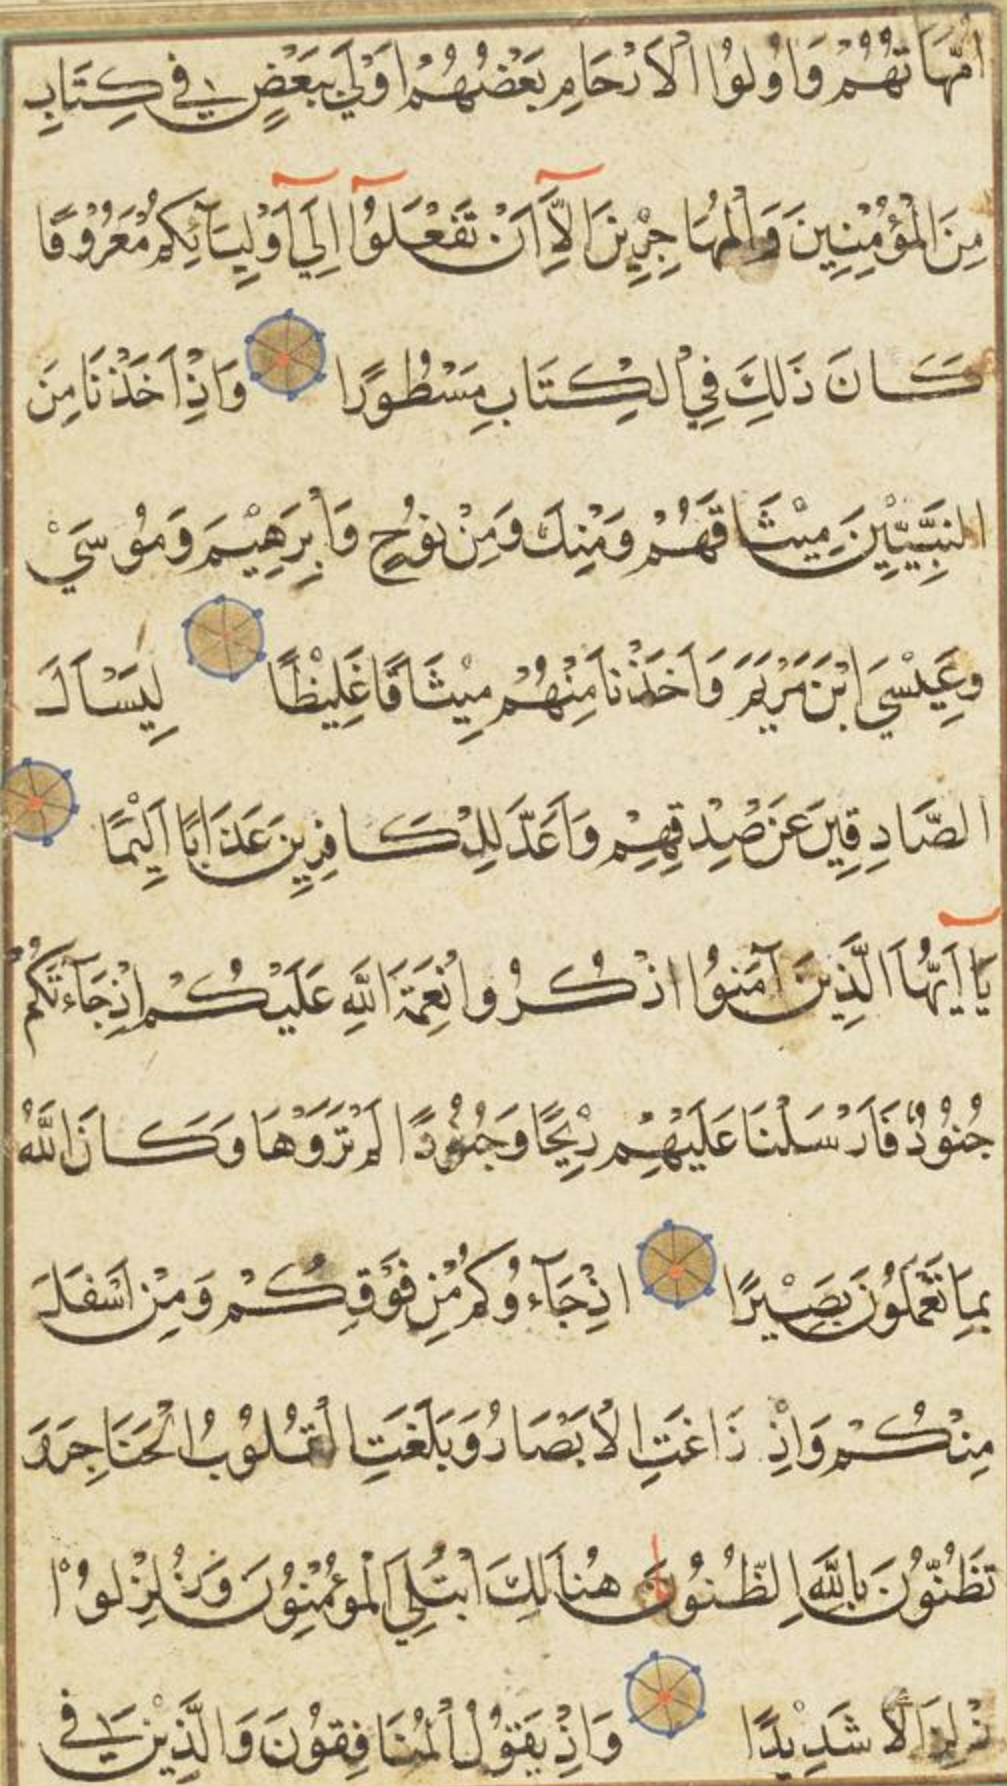 اُمَّهَاتُهُمْ وَاُولُوا الْاَرْحَامِ بَعْضُهُمْ اَوْلَى بِبَعْضٍ فِي كِتَابِ
مِنَ الْمُؤْمِنِينَ وَالْمُهَاجِرِينَ اِلَّا اَنْ تَفْعَلُوا اِلَى اَوْلِيَائِكُمْ مَعْرُوفًا
كَانَ ذَلِكَ فِي الْكِتَابِ مَسْطُورًا وَاِذْ اَخَذْنَا مِنَ
النَّبِيِّينَ مِيثَاقَهُمْ وَمِنْكَ وَمِنْ نُوحٍ وَاِبْرَهِيمَ وَمُوسَى
وَعِيسَى ابْنِ مَرْيَمَ وَاَخَذْنَا مِنْهُمْ مِيثَاقًا غَلِيظًا لِيَسْاَلَ
الصَّادِقِينَ عَنْ صِدْقِهِمْ وَاَعَدَّ لِلْكَافِرِينَ عَذَابًا اَلِيمًا
يَا اَيُّهَا الَّذِينَ آمَنُوا اذْكُرُوا نِعْمَةَ اللَّهِ عَلَيْكُمْ اِذْ جَاءَتْكُمْ
جُنُودٌ فَاَرْسَلْنَا عَلَيْهِمْ رِيحًا وَجُنُودًا لَمْ تَرَوْهَا وَكَانَ اللَّهُ
بِمَا تَعْمَلُونَ بَصِيرًا اِذْ جَاءُوكُمْ مِنْ فَوْقِكُمْ وَمِنْ اَسْفَلَ
مِنْكُمْ وَاِذْ زَاغَتِ الْاَبْصَارُ وَبَلَغَتِ الْقُلُوبُ الْحَنَاجِرَ وَ
تَظُنُّونَ بِاللَّهِ الظُّنُونَ هُنَالِكَ ابْتُلِيَ الْمُؤْمِنُونَ وَزُلْزِلُوا
زِلْزَالًا شَدِيدًا وَاِذْ يَقُولُ الْمُنَافِقُونَ وَالَّذِينَ فِي